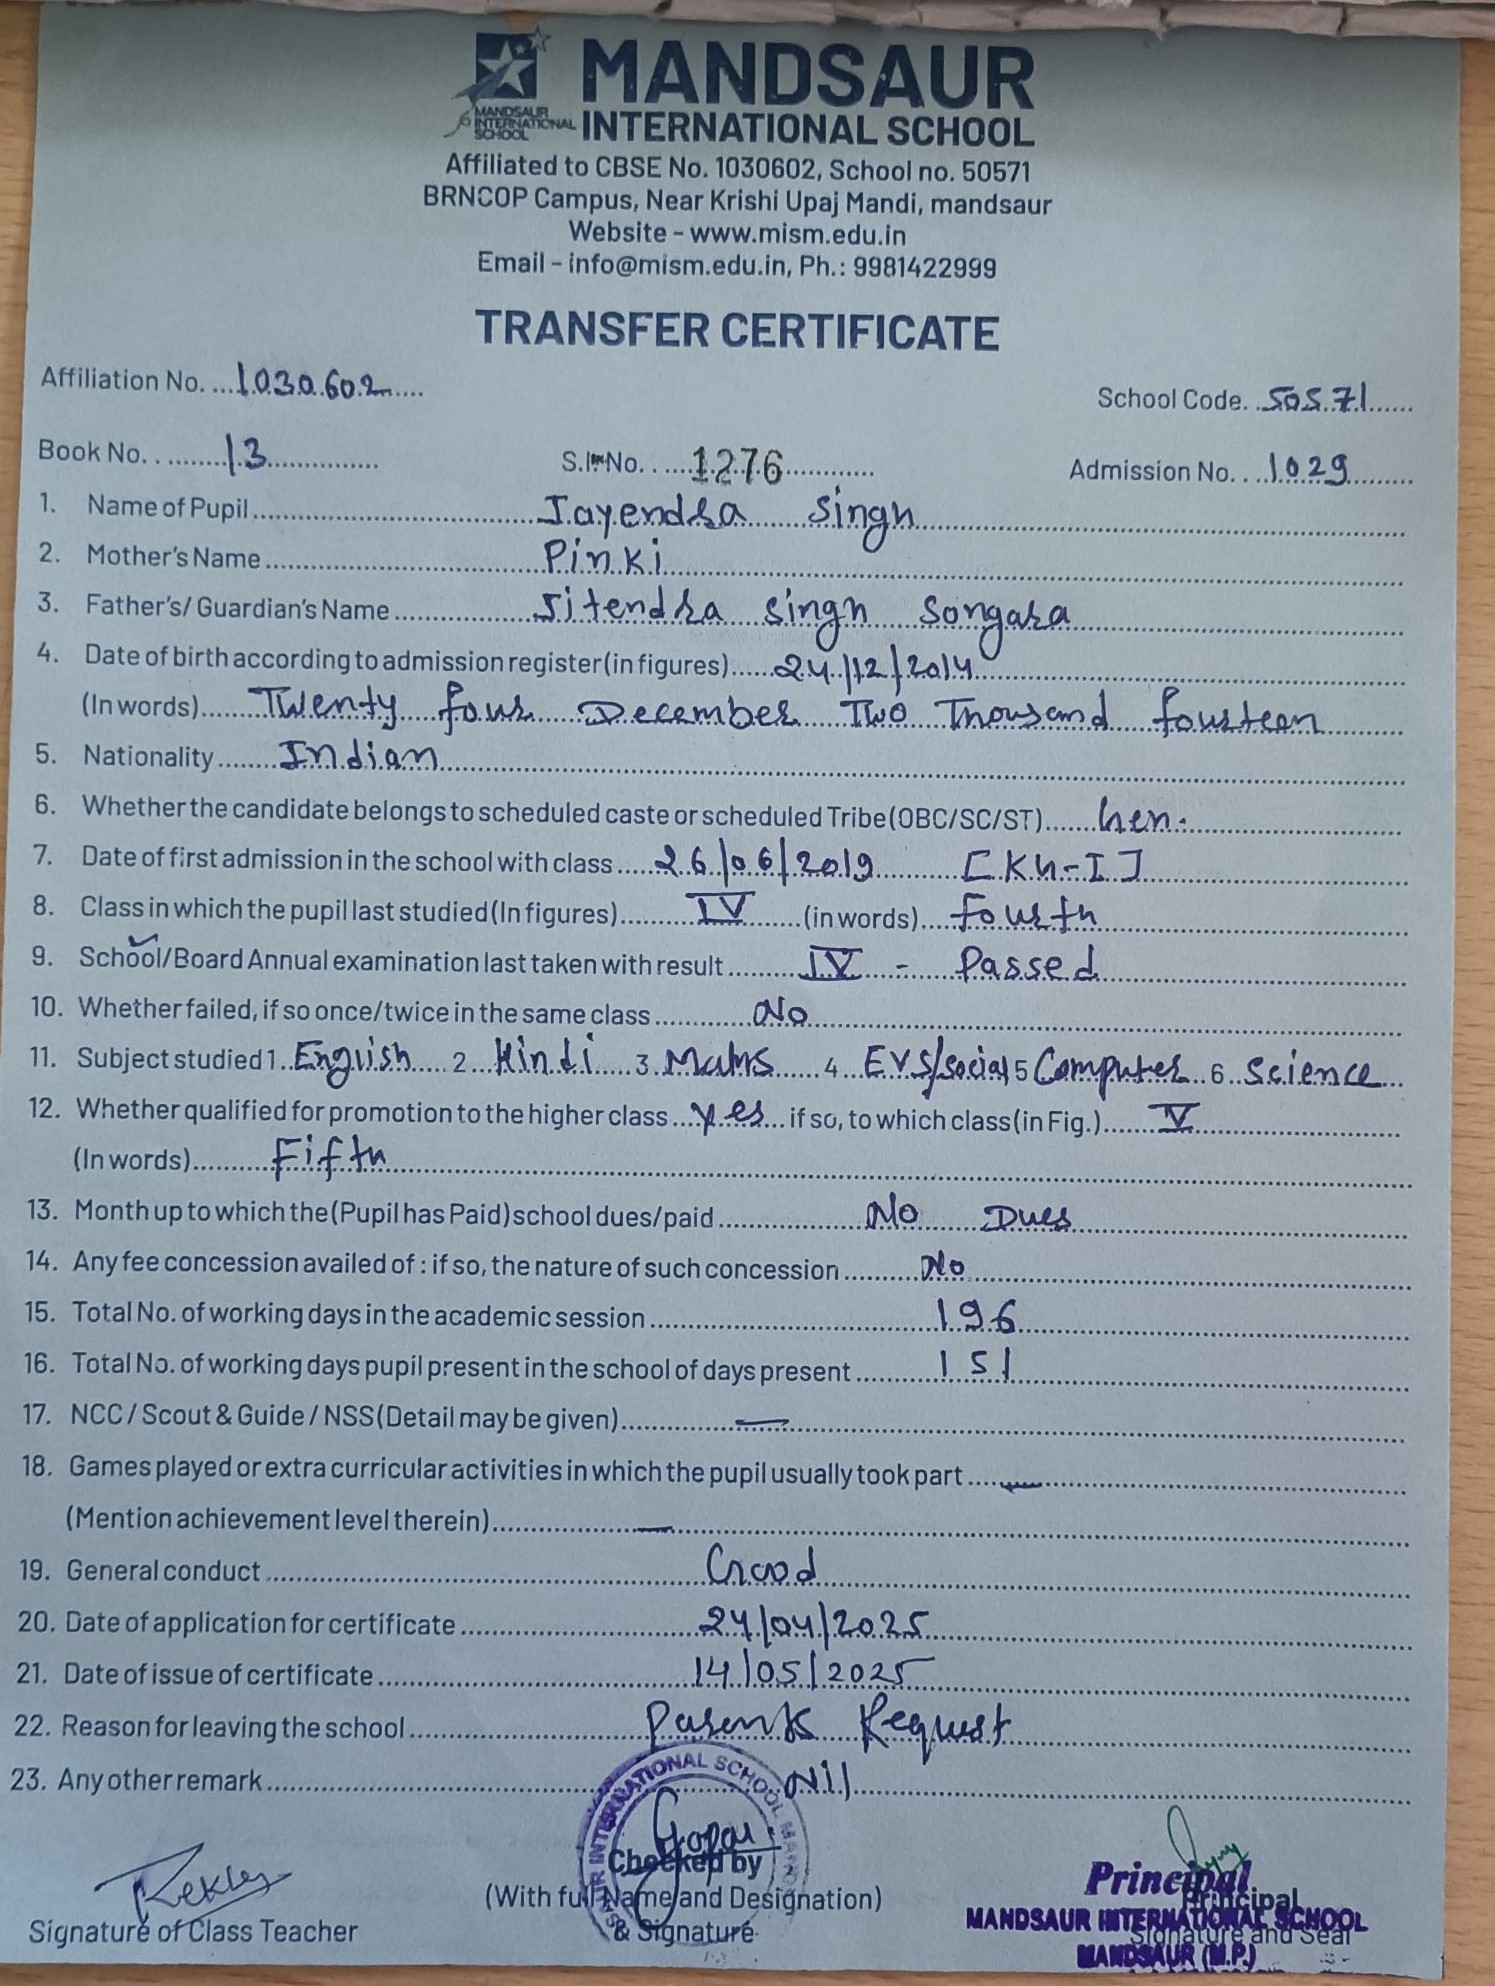 MANDSAUR
INTERNATIONAL SCHOOL
MANDSAUR
INTERNATIONAL
SCHOOL
Affiliated to CBSE No. 1030602, School no. 50571
BRNCOP Campus, Near Krishi Upaj Mandi, mandsaur
Website - www.mism.edu.in
Email - info@mism.edu.in, Ph.: 9981422999
TRANSFER CERTIFICATE
Affiliation No. ...1030602...... School Code. ..50571......
Book No. .. ........13................ S.l No. .. ....1276............ Admission No. .. .1029.........
1. Name of Pupil .... Jayendra Singh
2. Mother's Name .... Pinki
3. Father's/ Guardian's Name .... Jitendra Singh Songara
4. Date of birth according to admission register (in figures) .... 24/12/2014
(In words) .... Twenty four December Two Thousand fourteen
5. Nationality .... Indian
6. Whether the candidate belongs to scheduled caste or scheduled Tribe (OBC/SC/ST) .... Gen.
7. Date of first admission in the school with class .... 26/06/2019 [KG-I]
8. Class in which the pupil last studied (In figures) .... IV .... (in words) .... Fourth
9. School/Board Annual examination last taken with result .... IV - Passed
10. Whether failed, if so once/twice in the same class .... No
11. Subject studied 1. English 2. Hindi 3. Maths 4. EVS/Social 5 Computer 6. Science
12. Whether qualified for promotion to the higher class .... Yes ... if so, to which class (in Fig.) .... V
(In words) .... Fifth
13. Month up to which the (Pupil has Paid) school dues/paid .... No Dues
14. Any fee concession availed of : if so, the nature of such concession .... No
15. Total No. of working days in the academic session .... 196
16. Total No. of working days pupil present in the school of days present .... 151
17. NCC / Scout & Guide / NSS (Detail may be given) .... —
18. Games played or extra curricular activities in which the pupil usually took part .... —
(Mention achievement level therein) .... —
19. General conduct .... Good
20. Date of application for certificate .... 24/04/2025
21. Date of issue of certificate .... 14/05/2025
22. Reason for leaving the school .... Parents Request
23. Any other remark .... Nil
INTERNATIONAL SCHOOL
Checked by
(With full Name and Designation)
& Signature
Signature of Class Teacher
Principal
MANDSAUR INTERNATIONAL SCHOOL
MANDSAUR (M.P.)
Principal
Signature and Seal